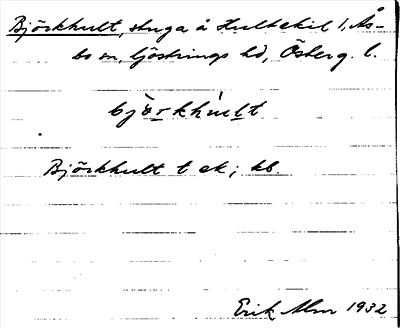 Björkhult, stuga å Hultskil 1, Ås-
bo sn, Göstrings hd, Österg. l.
björkhult
Björkhult t ek; kb.
Erik Alm 1932